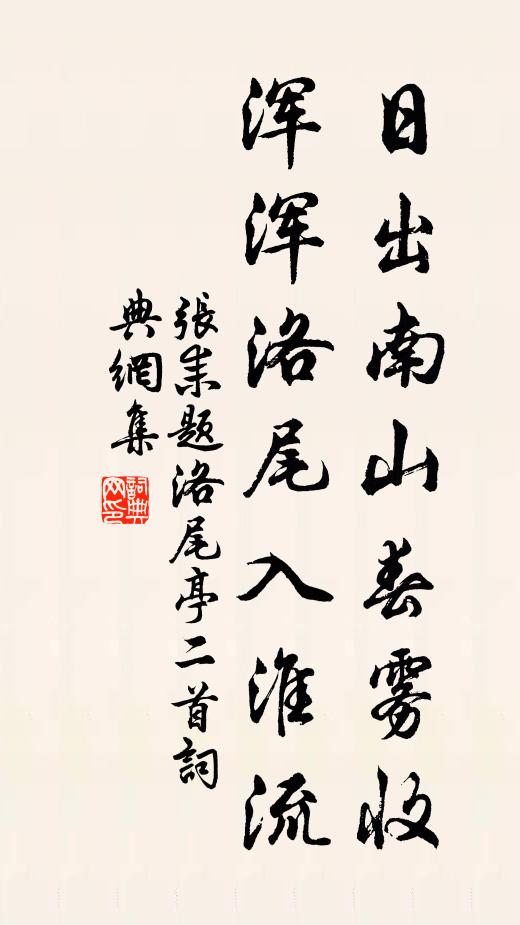 日出南山春雾收
浑浑洛尾入淮流
張耒题洛尾亭二首詞
典網集
詞典网印